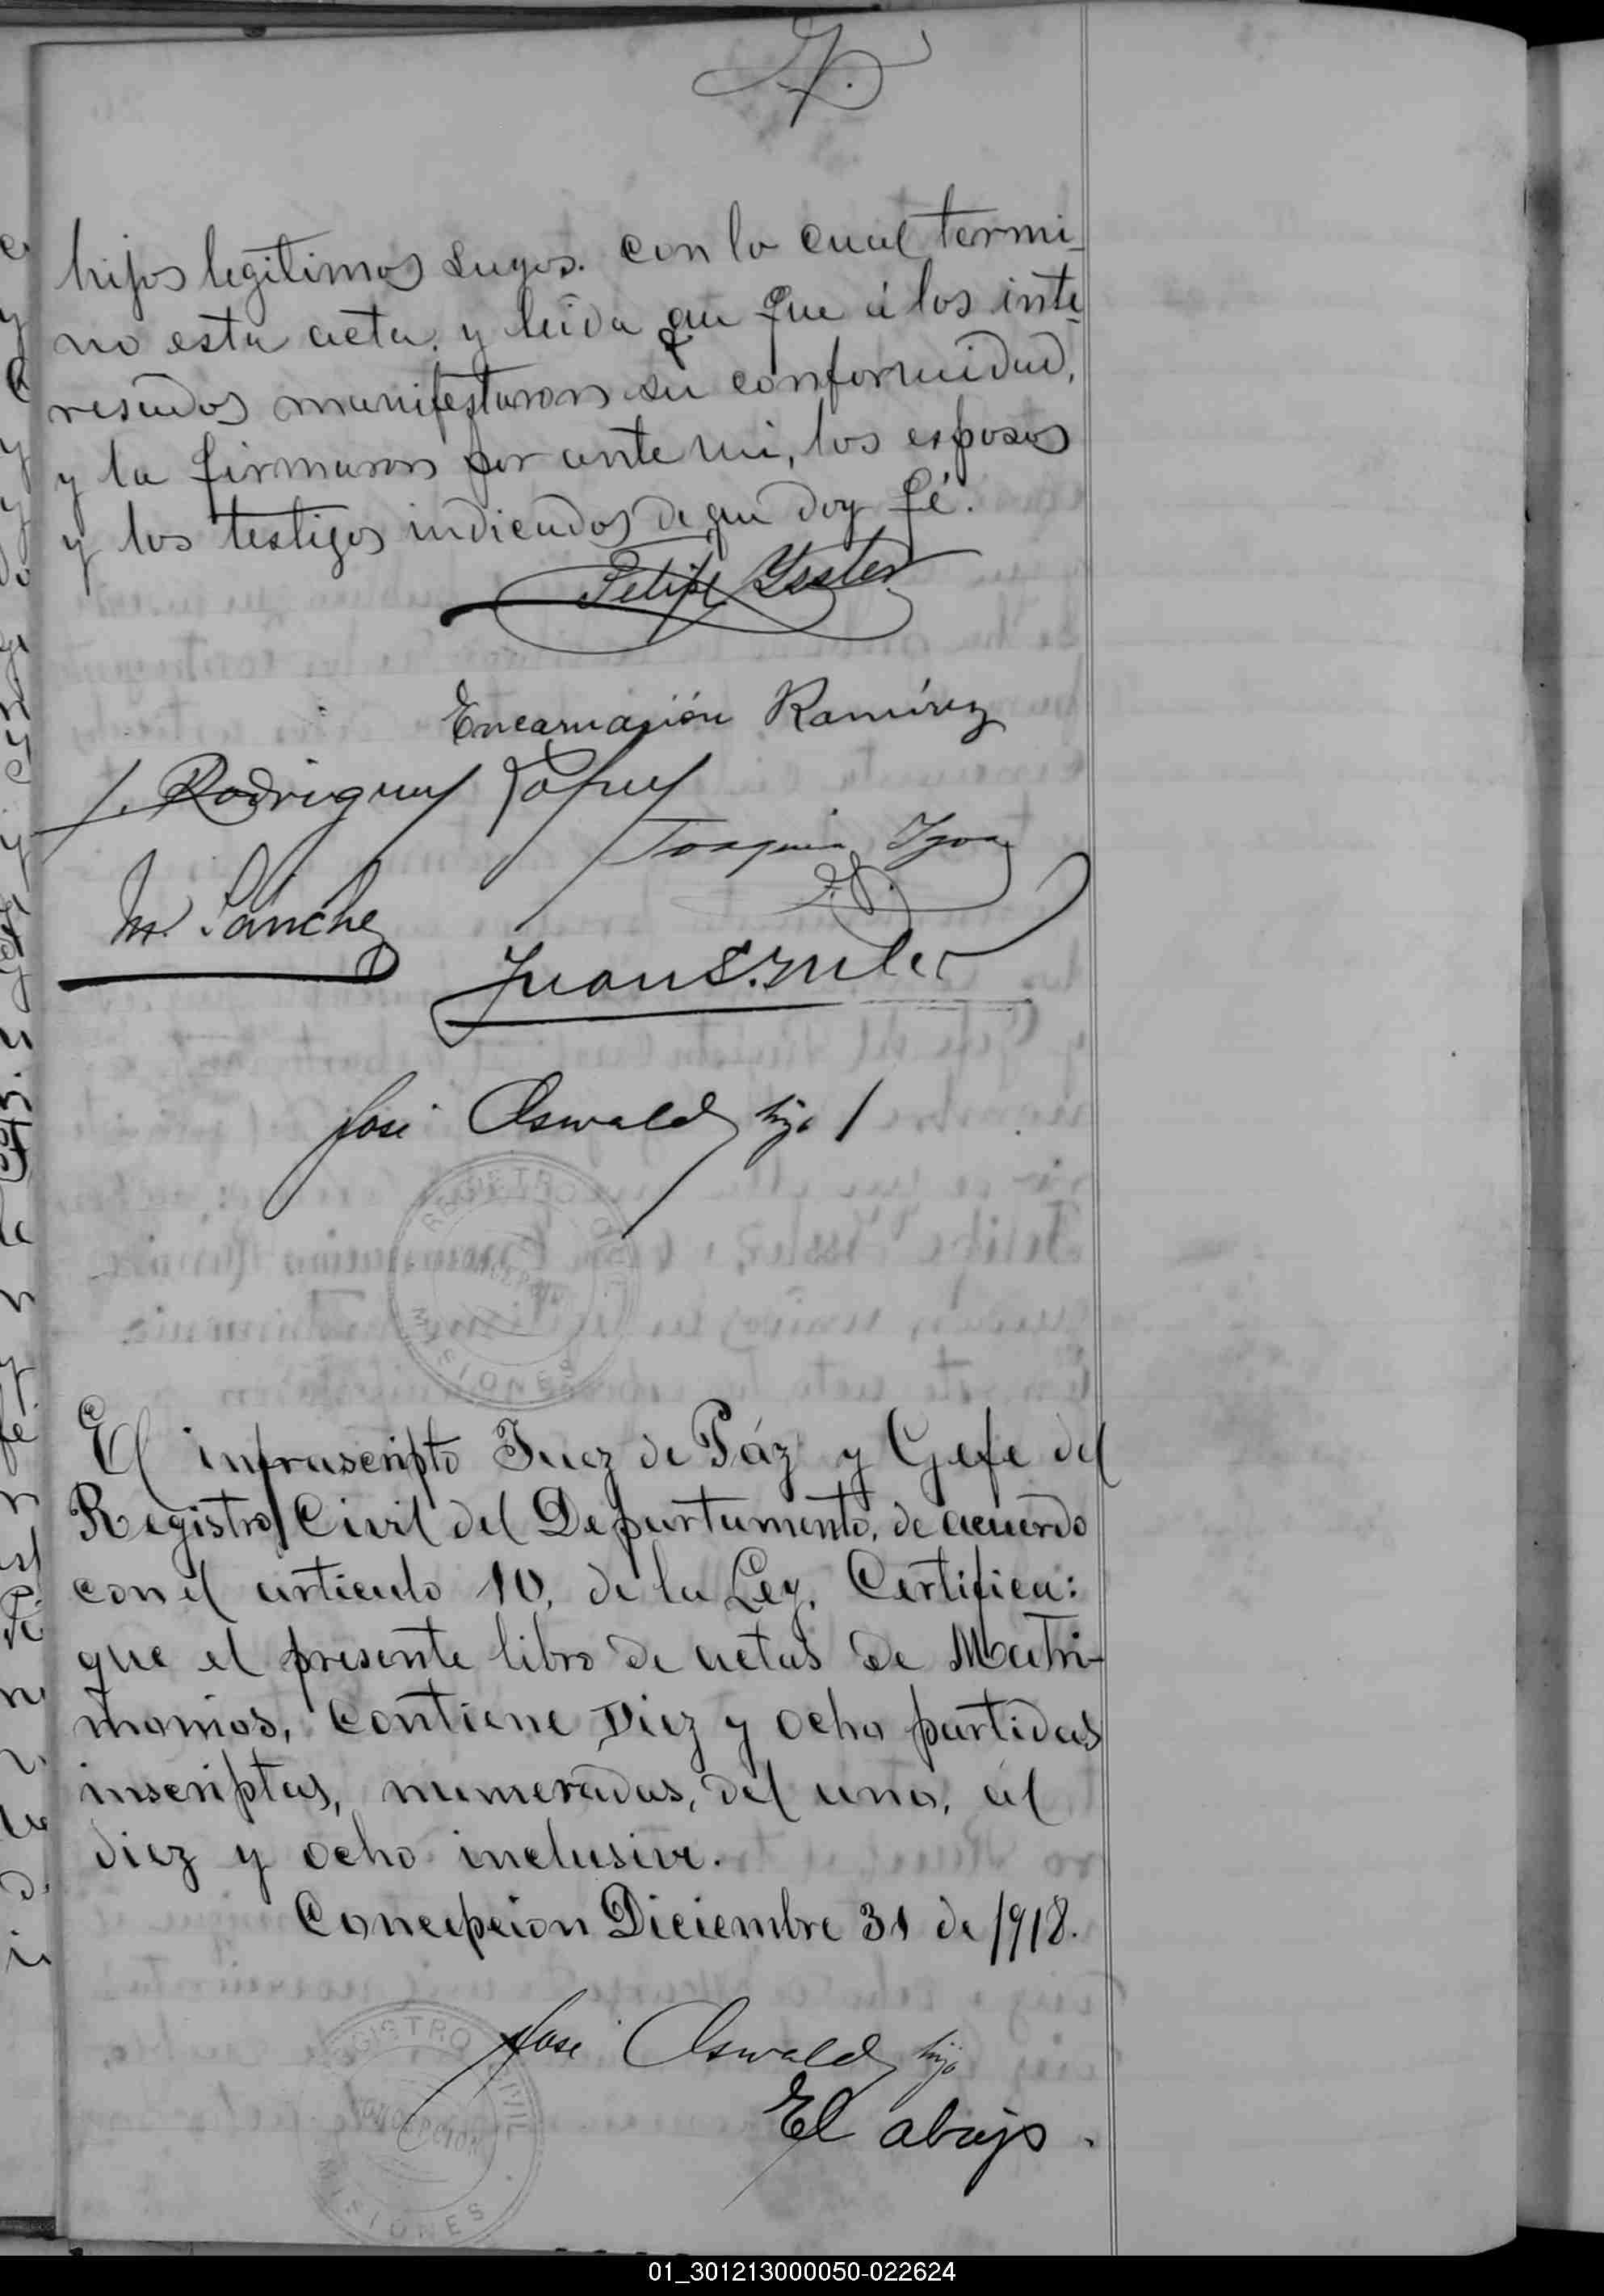 hijos legitimos suyos. con lo cual termi-
no esta acta, y leida que fue á los inte-
resados manifestaron su conformidad,
y la firmaron por ante mi, los esposos
y los testigos indicados de que doy fé.
Felipe Yssler
Encarnación Ramírez
J. Rodriguez López
Joaquin
M. Sánchez
Juan S.
José Oswald hijo
REGISTRO CIVIL
CONCEPCION
MISIONES
El infrascripto Juez de Páz y Gefe del
Registro Civil del Departamento, de acuerdo
con el articulo 10, de la Ley. Certifica:
que el presente libro de actas de Matri-
monios, contiene Diez y ocho partidas
inscriptas, numeradas, del uno, al
diez y ocho inclusive.
Concepcion Diciembre 31 de 1918.
José Oswald hijo
El abajo.
REGISTRO CIVIL
CONCEPCION
MISIONES
01_301213000050-022624